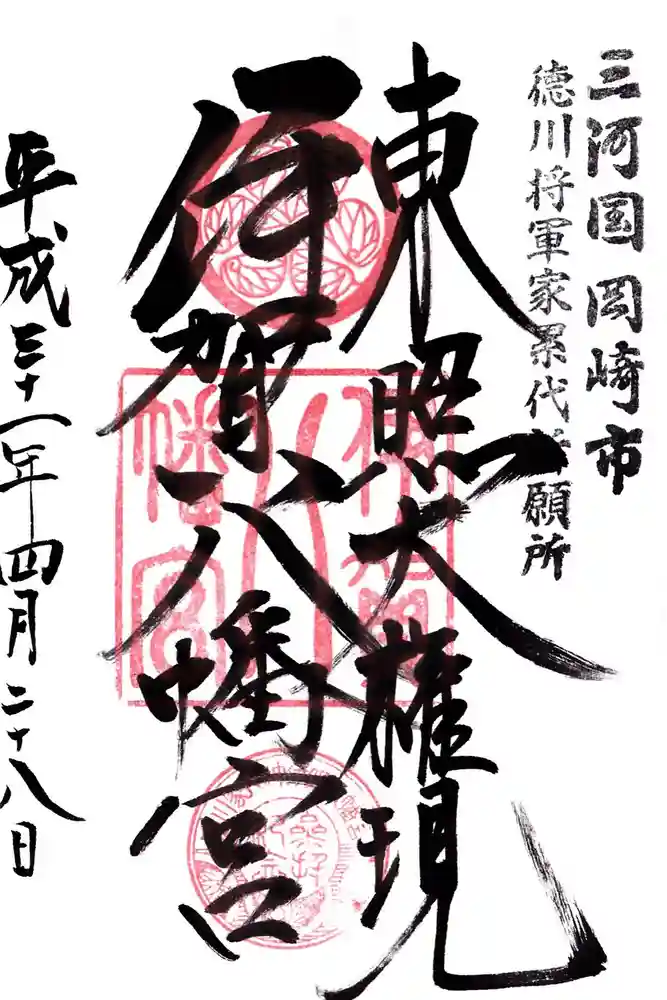 三河国 岡崎市
徳川将軍家累代祈願所
東照大権現
伊賀八幡宮
平成三十一年四月二十八日
伊賀
八
幡宮